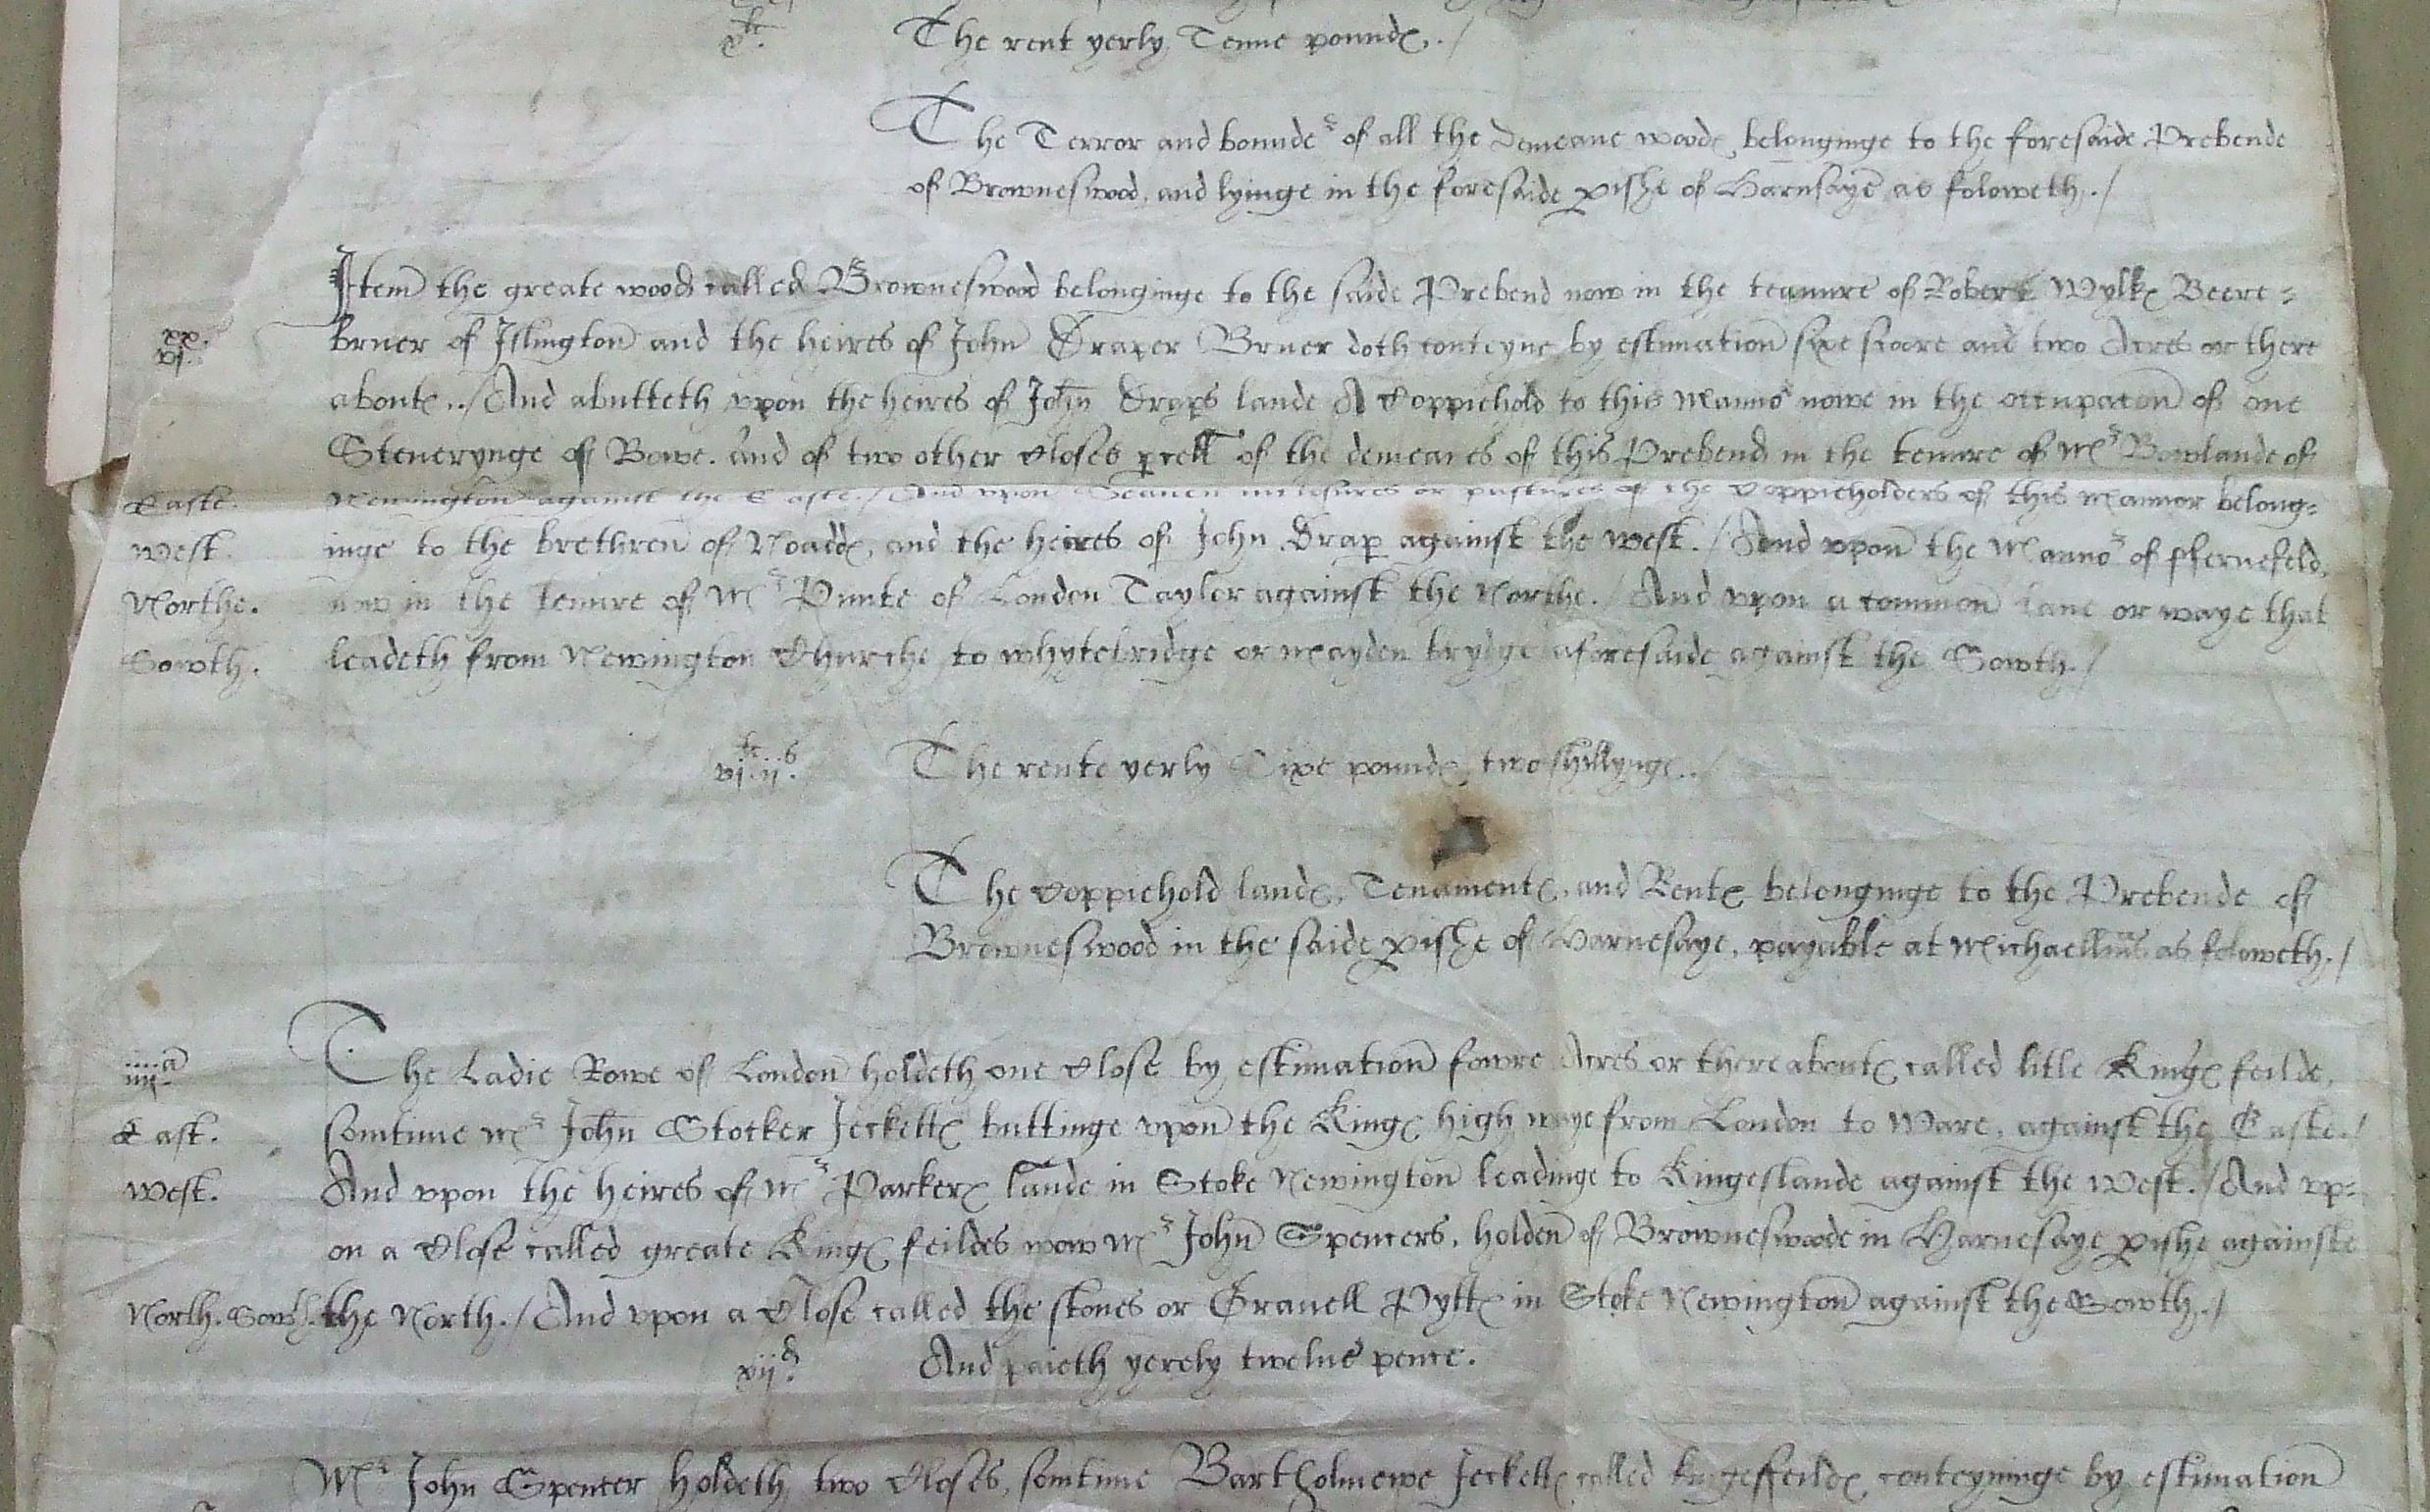 li x. The rent yerly Tenne poundes./
The Terror and boundes of all the demeane woodes belonginge to the foresaide Prebende
of Browneswood, and lyinge in the foresaide pishe of Harnsaye as foloweth./
Item the greate wood called Browneswood belonginge to the saide Prebend now in the teanure of Robert Wylkes Beere=
xx vj. bruer of Islington and the heires of John Draper Bruer doth conteyne by estimation sixe skore and two Acres or there
aboutes./ And abutteth vpon the heires of John Draps lande A Coppiehold to this Mannor nowe in the occupacon of one
Stenerynge of Bowe. And of two other Closes pcell of the demeanes of this Prebend in the tenure of Mr Bowlande of
Easte. Newington against the Easte./ And vpon Seauen inclosures or pastures of the Coppieholders of this Mannor belong=
West. inge to the brethren of Roades, and the heires of John Drap against the West./ And vpon the Mannor of ffernefeld,
Northe. now in the tenure of Mr Punte of London Tayler against the Northe./ And vpon a common lane or waye that
Sowth. leadeth from Newington Churche to whytebridge or mayden brydge aforesaide against the Sowth./
li s vj. ij. The rente yerly Sixe poundes two shillynges./
The Coppiehold landes, Tenamentes, and Rentes belonginge to the Prebende of
Browneswood in the saide pishe of Harnesaye, payable at Michaellms as foloweth./
iiij a The Ladie Rowe of London holdeth one Close by estimation fowre Acres or there aboutes called litle Kinges feilde,
East. somtime Mr John Stocker Jeckettes buttinge vpon the Kinges high waye from London to Ware, against the Easte./
West. And vpon the heires of Mr Parkers lande in Stoke Newington leadinge to Kingeslande against the West./ And vp=
on a Close called greate Kinges feildes now Mr John Spencers, holden of Browneswoode in Harnesaye pishe againste
North. Sowth. the North./ And vpon a Close called the stones or Grauell Pyttes in Stoke Newington against the Sowth./
xij d. And paieth yerely twelue pence.
Mr John Spencer holdeth two Closes, somtime Bartholmewe Jeckettes called kingesfeildes conteyninge by estimation